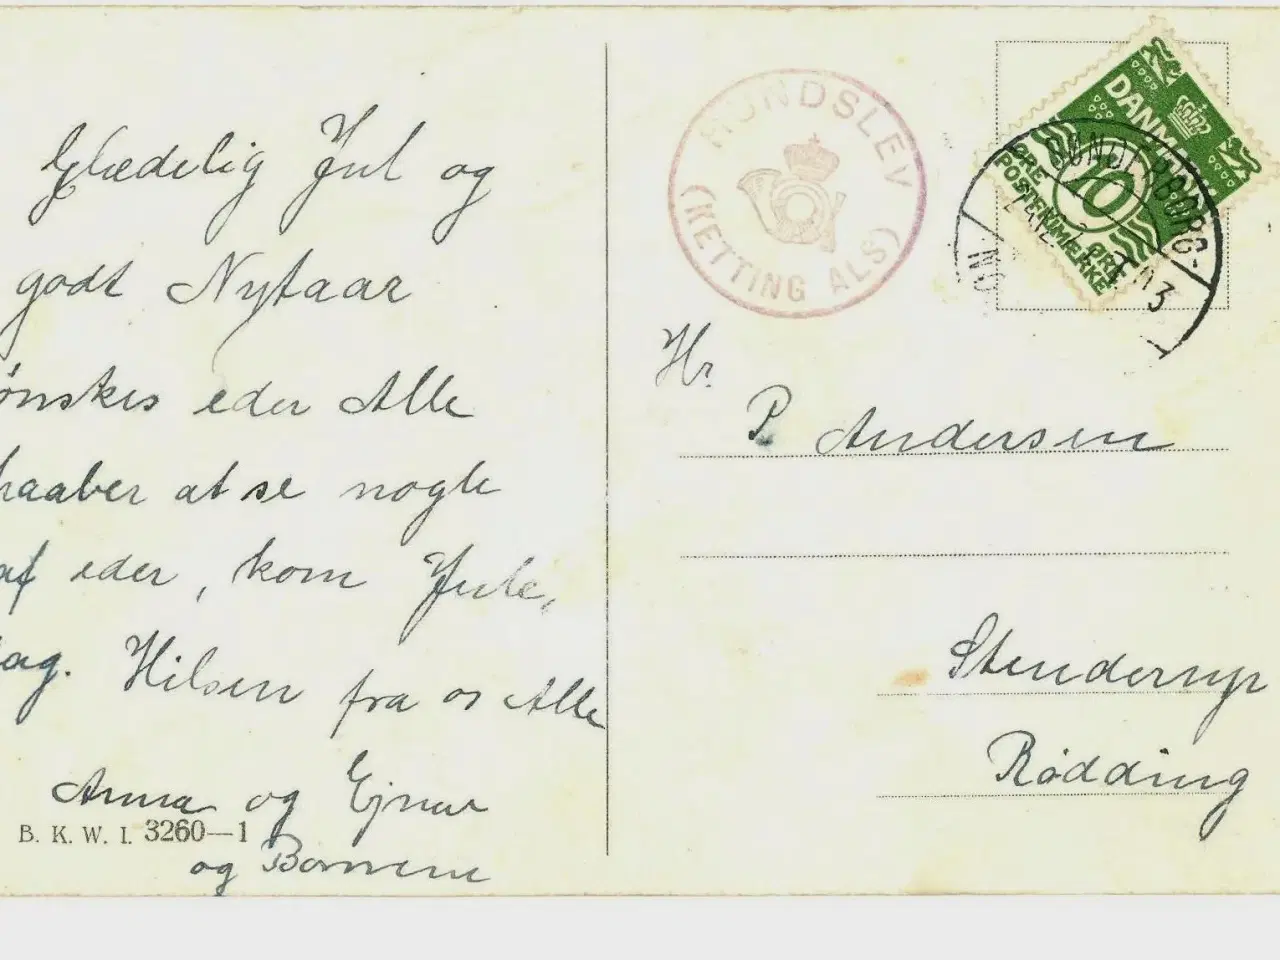 Glædelig Jul og
godt Nytaar
ønskes eder Alle
haaber at se nogle
af eder, kom Jule,
dag. Hilsen fra os Alle
Anna og Ejnar
og Børnene
B. K. W. I. 3260—1
HUNDSLEV
(KETTING ALS)
DANMARK
10
ØRE ØRE
POSTFRIMÆRKE
SØNDERBORG-
NO
Hr.
P. Andersen
Stenderup
Rødding